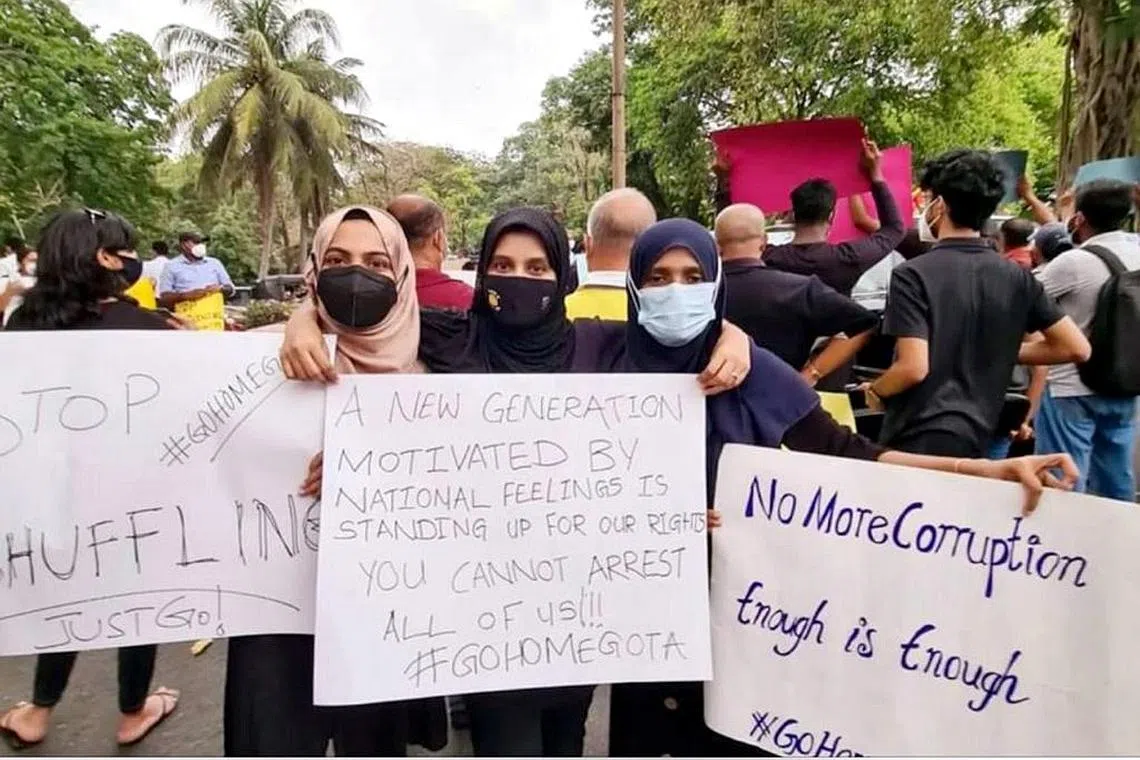 STOP
#GOHOMEG
HUFFLING
JUST GO!
A NEW GENERATION
MOTIVATED BY
NATIONAL FEELINGS IS
STANDING UP FOR OUR RIGHTS
YOU CANNOT ARREST
ALL OF US!!!
#GOHOMEGOTA
No More Corruption
Enough is Enough
#GoHo